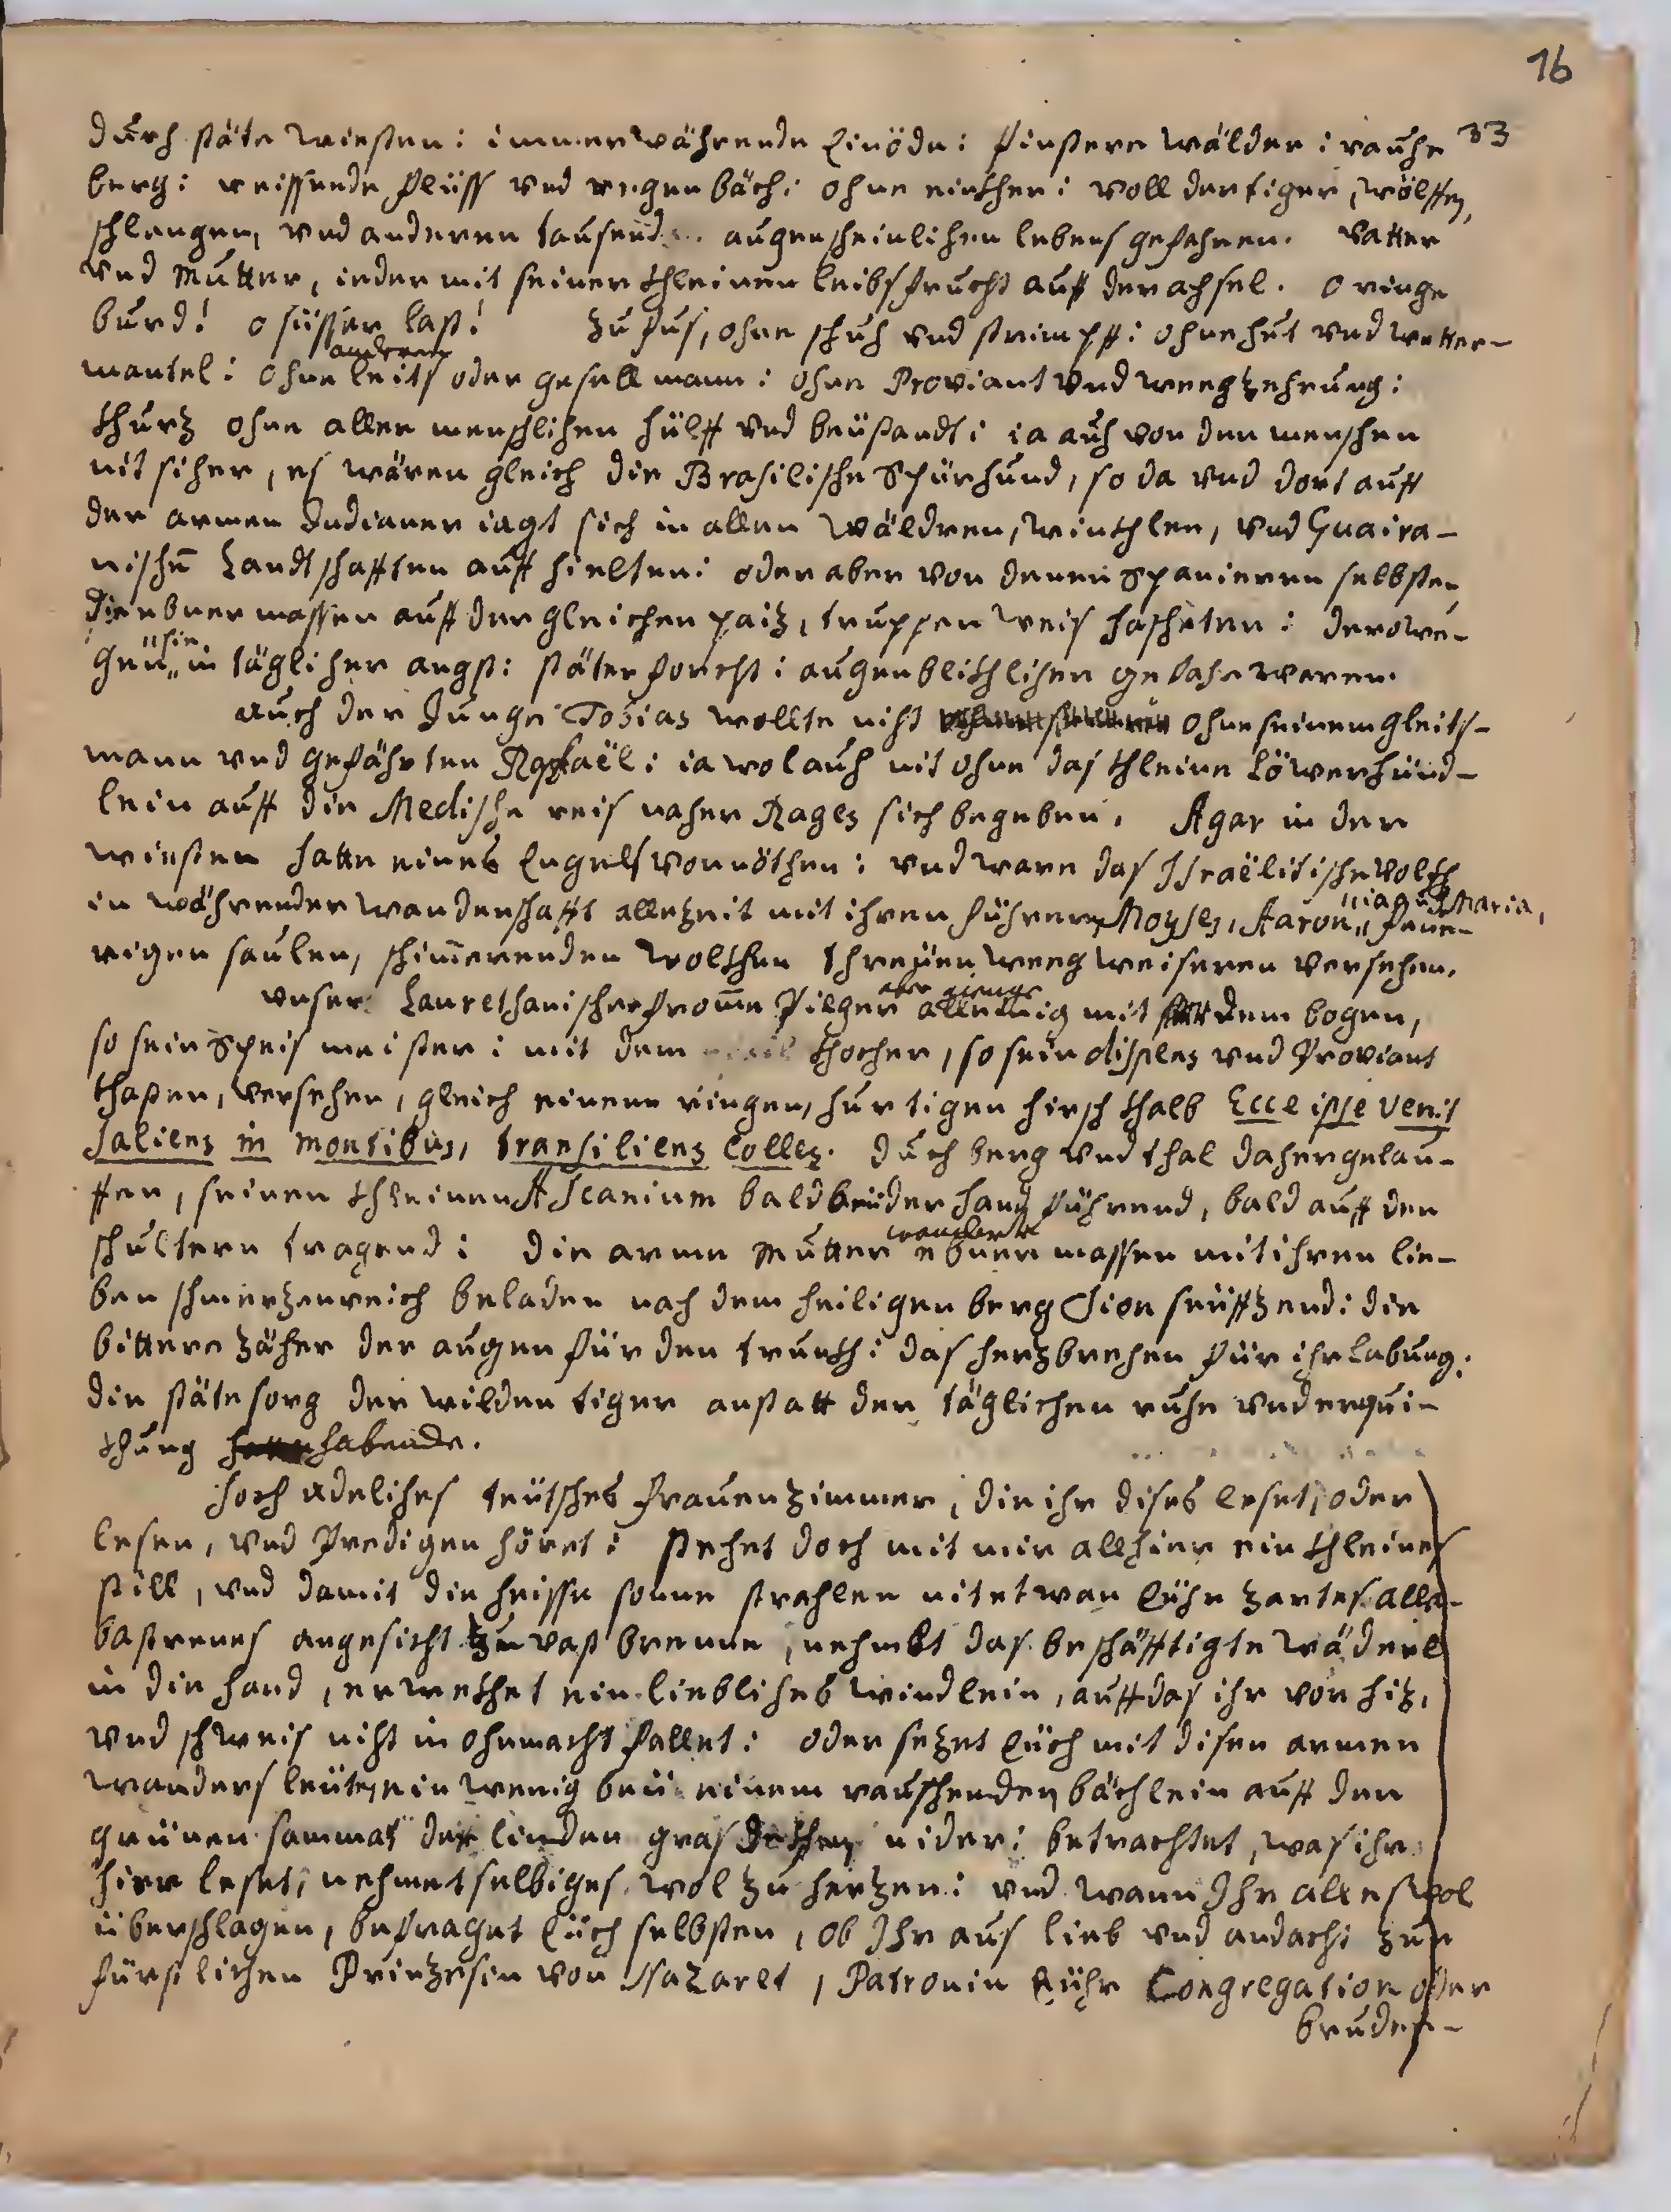 16
durch stäte wiesten: immerwährende Einöde: finstere wälder: rauhe 33
berg: reissende flüss vnd regenbäch: ohne einkher: voll der tiger, wölffen,
schlangen, vnd anderen tausend augenscheinlichen lebens gefahren. Vatter
vnd Mutter, ieder mit seiner khleinen leibsfrucht auff der achsel. O ringe
burd! o süsser last! Zu fus, ohne schuh vnd strimpff: ohne hut vnd wetter-
anderen
mantel: ohne leits oder gesellmann: ohne Proviant vnd weegzehrung:
khurz ohne aller menschlichen hülff vnd beÿstandt: ia auch von den menschen
nit sicher, es wären gleich die Brasilische Spürhund, so da vnd dort auff
der armen Indianer iagt sich in allen wäldren, winkhlen, vnd Guaira-
nischen Landtschafften auff hielten: oder aber von denen Spanieren selbsten,
die ebner massen auff dergleichen paiz, truppen weis hascheten: derowe-
hin
gen in täglicher angst: stäter forcht: augenblikhlicher gefahr waren.
Auch der Junge Tobias wollte niht ohne seinem gleits-
mann vnd gefährten Raphaël: ia wol auch nit ohne das khleine Löwerhünd-
lein auff die Medische reis naher Rages sich begeben. Agar in der
wiesten hatte eines Engels vonnöthen: vnd ware das Israëlitische Volkh
in währender wanderschafft allezeit mit ihren führeren Moyses, Aaron, ia auch Maria, feüe-
rigen saulen, schimerenden wolkhen threüen weegweiseren versehen.
Vnser Laurethanischer frome Pilger aber gienge allenig mit dem bogen,
so sein Speis meister: mit dem khocher, so sein dispens vnd Proviant
khasten, versehen, gleich einem ringen, hurtigen hirsch khalb Ecce ipse venit
saliens in montibus, transiliens Colles. durch berg vnd thal dahergelau-
ffen, seinen khleinen Ascanium bald beÿ der hand führend, bald auff den
schultern tragend: die arme Mutter wanderte ebner massen mit ihren lie-
ben schmerzenreich beladen nach dem heiligen berg Sion seüffzend: die
bittere zäher der augen für den trunkh: das herzbrechen für ihr Labung:
die stäte sorg der wilden tiger anstatt der täglichen ruhe vnd erqui-
khung habende.
Hoch adeliches teütsches frauenzimmer, die ihr dises leset, oder
lesen, vnd Predigen höret: stehet doch mit mir allhier ein khleines
still, vnd damit die heisse sonne strahlen nit etwan Eühr zartes alla-
bastrenes angesicht zu vast brenne, nehmbt das beschäfftigte wäderl
in die hand, erwekhet ein liebliches windlein, auff das ihr vor hiz,
vnd schweis niht in ohnmacht fallet: oder sezet Eüch mit disen armen
wanders leüten ein wenig beÿ einem rauschenden bächlein auff den
grünen sammat der linden gras dekhen nider: betrachtet, was ihr
hier leset, nehmet selbiges wol zu herzen: vnd wann Ihr alles wol
überschlagen, befraget Eüch selbsten, ob Ihr aus lieb vnd andacht zur
fürstlichen Prinzesin von Nazaret, Patronin Eühr Congregation oder
bruder-